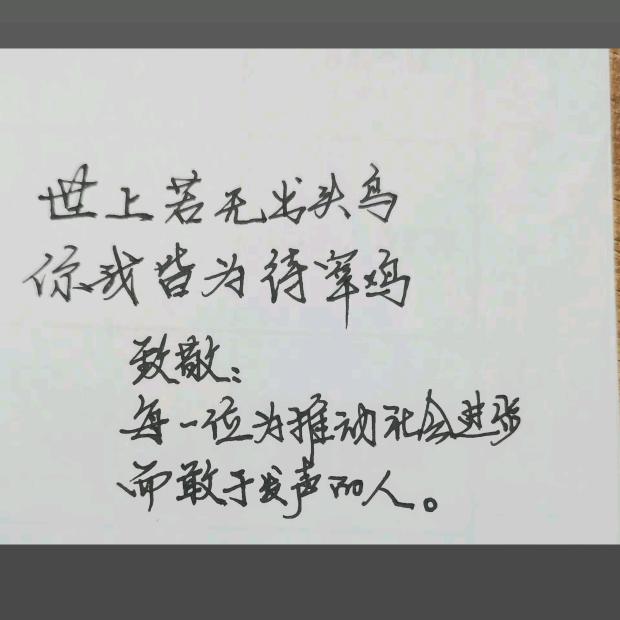 世上若无出头鸟
你我皆为待宰鸡
致敬：
每一位为推动社会进步
而敢于发声的人。